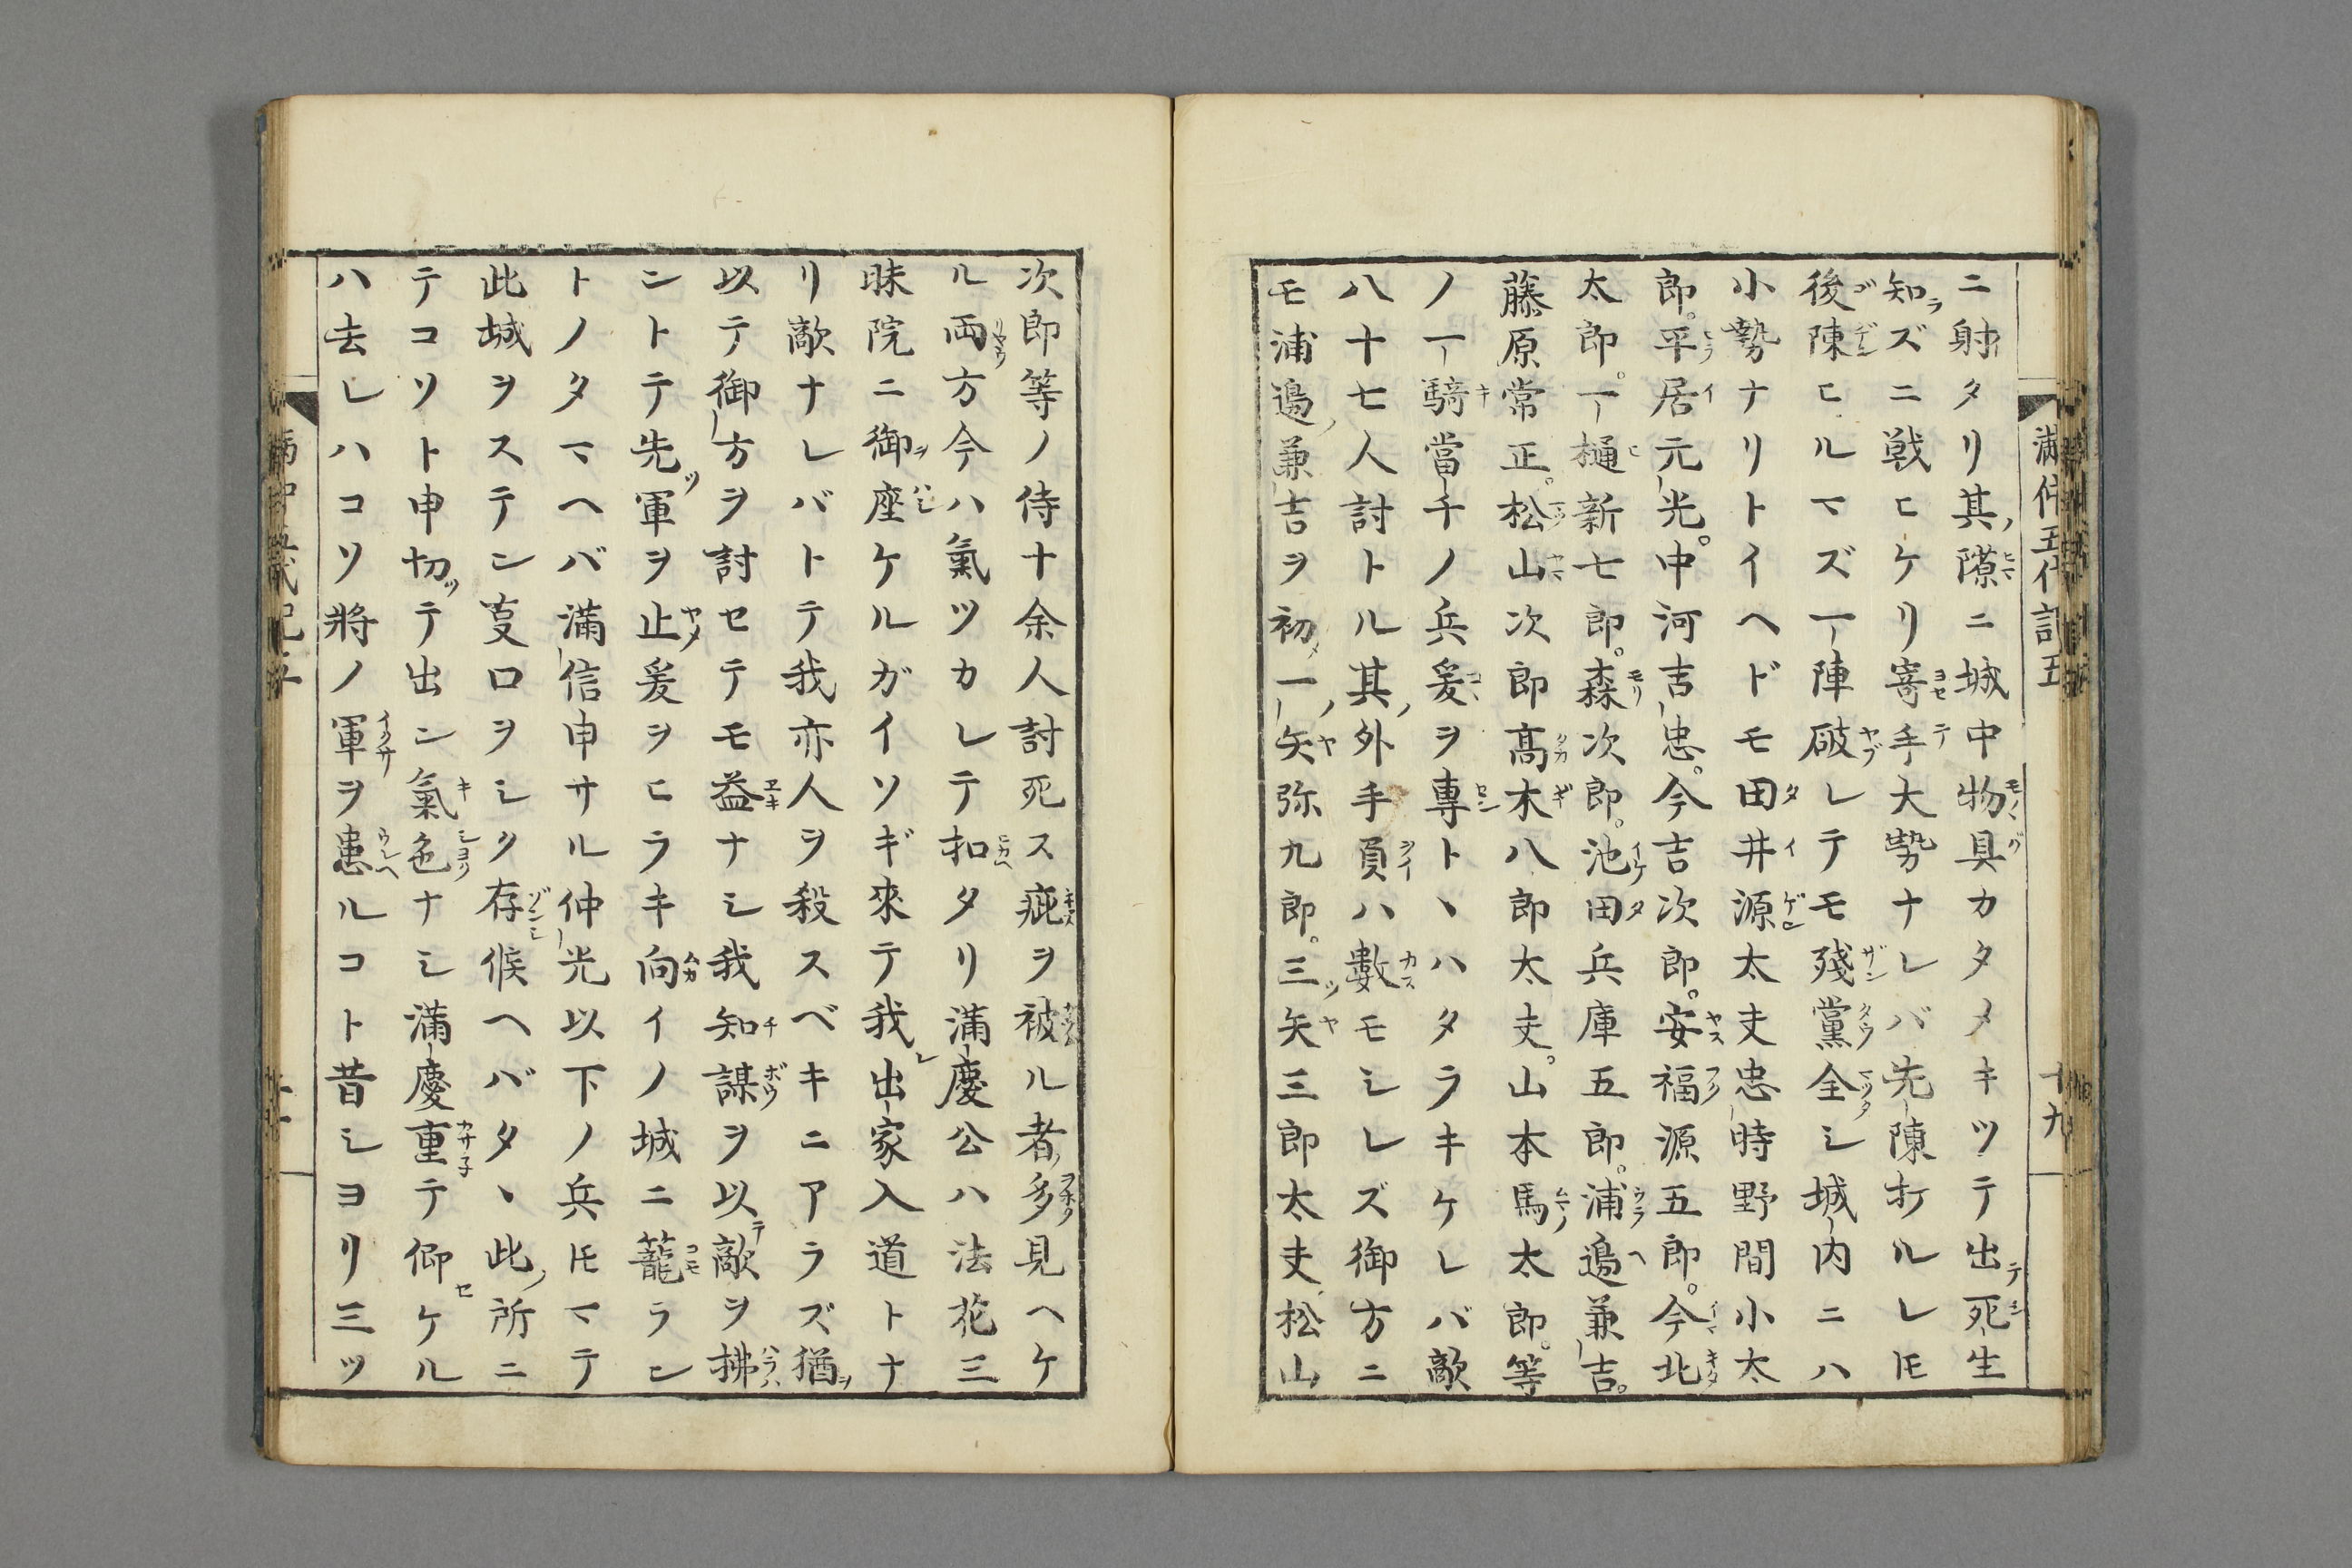 満仲五代記五
十九
ニ射タリ其ノ隙ニ城中物具カタメキツテ出死生
知ラズニ戦ヒケリ寄手大勢ナレバ先陳打ルレ𪜈
後陳ヒルマズ一陣破レテモ残黨全シ城内ニハ
小勢ナリトイヘドモ田井源太夫忠時野間小太
郎。平居元光。中河吉忠。今吉次郎。安福源五郎。今北
太郎。一樋新七郎。森次郎。池田兵庫五郎。浦邉兼吉。
藤原常正。松山次郎髙木八郎太夫。山本馬太郎。等
ノ一騎當千ノ兵爰ヲ專トヽハタラキケレバ敵
八十七人討トル其ノ外手負ハ數モシレズ御方ニ
モ浦邉ノ兼吉ヲ初メ一ノ矢弥九郎。三ツ矢三郎太夫松山
次郎等ノ侍十余人討死ス疵ヲ被ル者多見ヘケ
ル両方今ハ氣ツカレテ扣タリ滿慶公ハ法花三
昧院ニ御座ケルガイソギ來テ我レ出家入道トナ
リ敵ナレバトテ我亦人ヲ殺スベキニアラズ猶ヲ
以テ御方ヲ討セテモ益ナシ我知謀ヲ以テ敵ヲ拂
ントテ先ツ軍ヲ止爰ヲヒラキ向イノ城ニ籠ラン
トノタマヘバ滿信申サル仲光以下ノ兵𪜈マテ
此城ヲステン支口ヲシク存候ヘバタヽ此ノ所ニ
テコソト申切ツテ出ン氣色ナシ滿慶重テ仰セケル
ハ去レハコソ將ノ軍ヲ患ルコト昔シヨリ三ツ